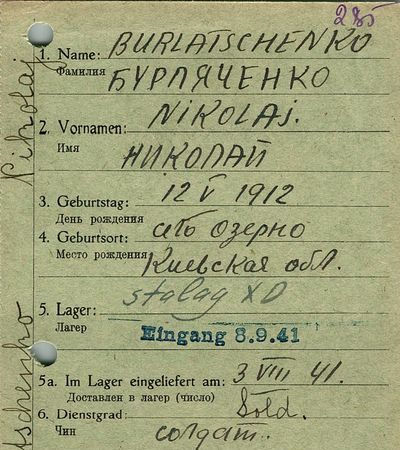 285
1. Name: BURLATSCHENKO
Фамилия БУРЛЯЧЕНКО
NIKOLAJ.
2. Vornamen:
Имя НИКОЛАЙ
3. Geburtstag: 12 V 1912
День рождения
4. Geburtsort: Озерно
Место рождения Киевская обл.
5. Lager: Stalag XD
Лагер
Eingang 8.9.41
5a. Im Lager eingeliefert am: 3 VIII 41.
Доставлен в лагер (число)
6. Dienstgrad: Sold.
Чин солдат.
Nikolaj
tschenko